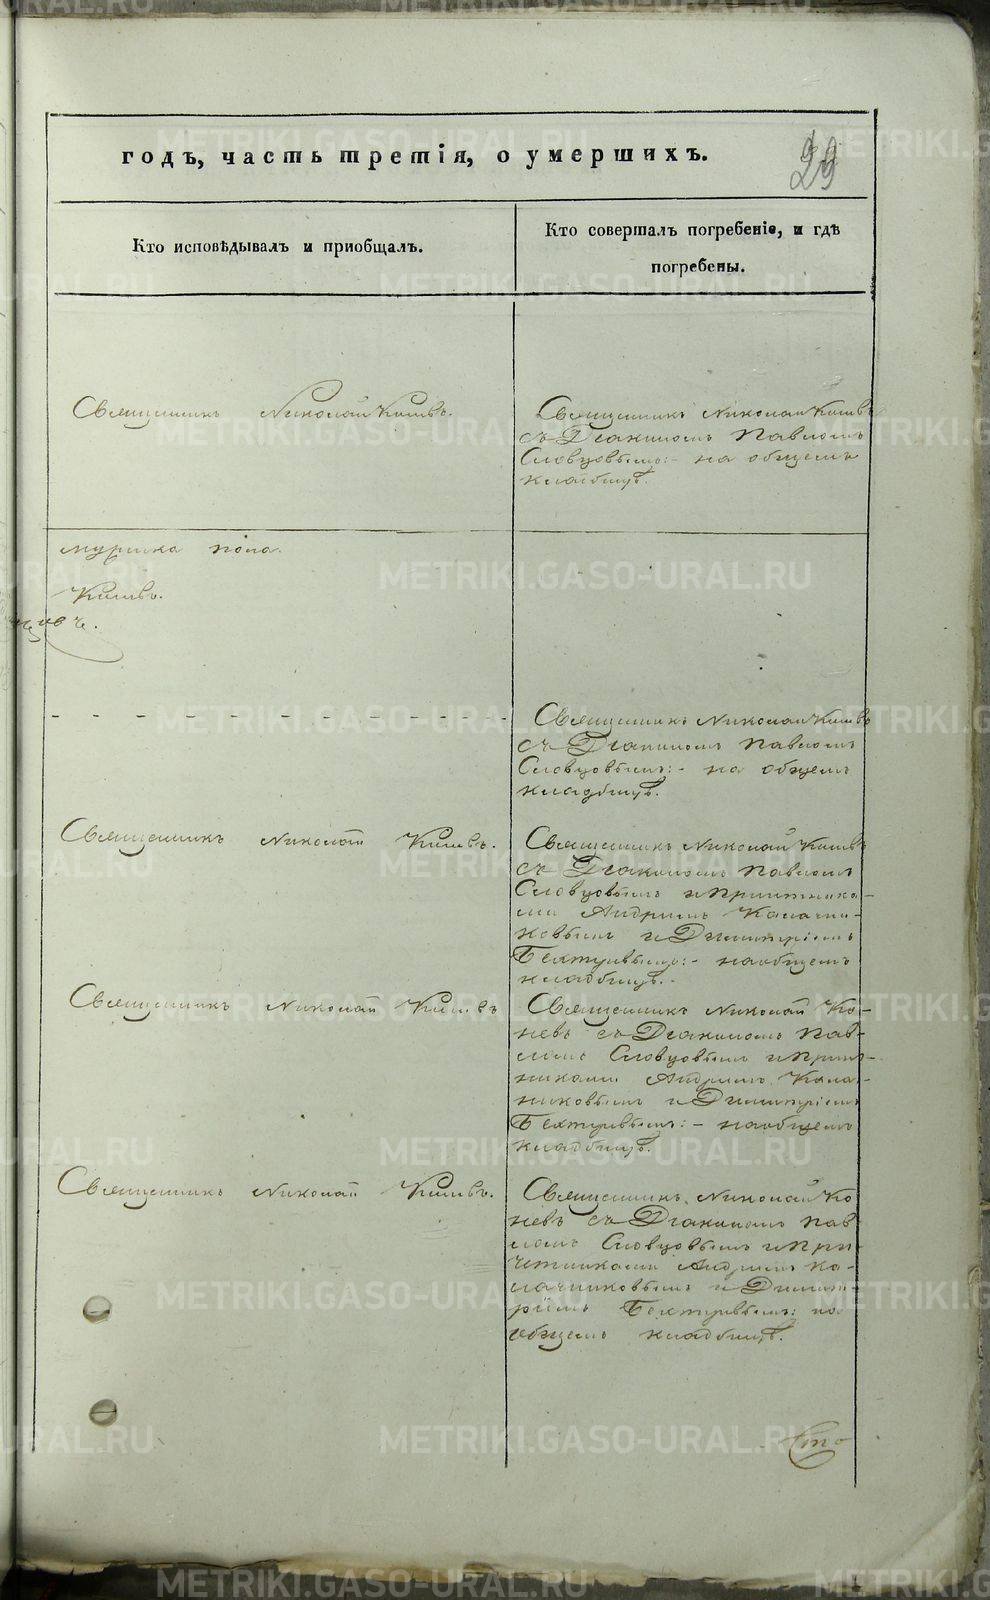 годъ, часть третія, о умершихъ.
29
Кто исповѣдывалъ и пріобщалъ.
Кто совершалъ погребеніе, и гдѣ
погребены.
Священникъ Николай Коневъ.
Священникъ Николай Коневъ
съ Діакономъ Павломъ
Словцовымъ:- на общемъ
кладбищѣ.
мужеска пола.
Коневъ.
Священникъ Николай Коневъ
съ Діакономъ Павломъ
Словцовымъ:- на общемъ
кладбищѣ.
Священникъ Николай Коневъ.
Священникъ Николай Коневъ
съ Діакономъ Павломъ
Словцовымъ и Причетника-
ми Андреемъ Калачни-
ковымъ и Димитріемъ
Бехтеревымъ:- на общемъ
кладбищѣ.-
Священникъ Николай Коневъ
Священникъ Николай Ко-
невъ съ Діакономъ Пав-
ломъ Словцовымъ и Причет-
никами Андреемъ Кала-
никовымъ и Димитріемъ
Бехтеревымъ:- на общемъ
кладбищѣ.
Священникъ Николай Коневъ.
Священникъ Николай Ко
невъ съ Діакономъ Пав
ломъ Словцовымъ и При-
четниками Андреемъ Ка-
лачниковымъ и Димит-
ріемъ Бехтеревымъ: на
общемъ кладбищѣ.
METRIKI.GASO-URAL.RU